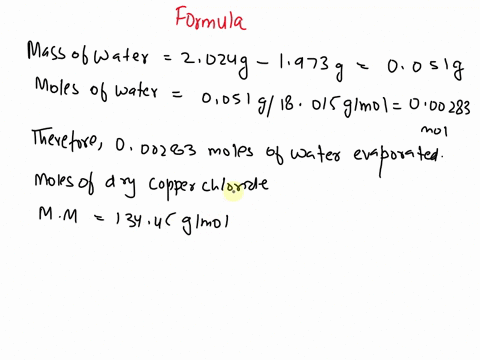 Formula
Mass of water = 2.024g - 1.973 g = 0.051g
Moles of water = 0.051 g/18.015 g/mol = 0.00283 mol
Therefore, 0.00283 moles of water evaporated.
Moles of dry Copper chloride
M.M = 134.45 g/mol